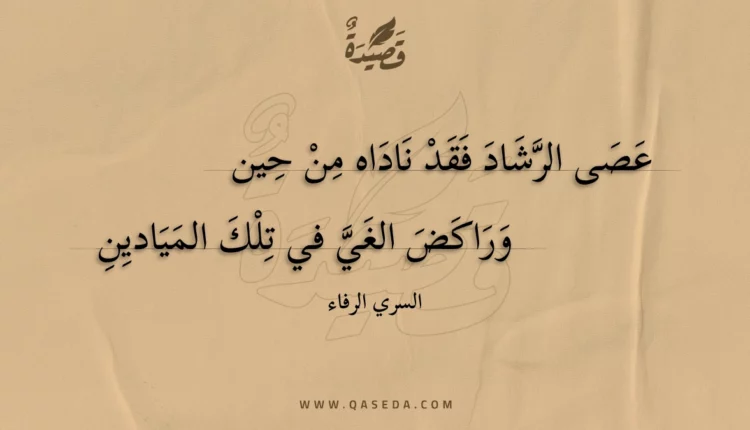 قَصِيْدَةٌ
عَصَى الرَّشَادَ فَقَدْ نَادَاه مِنْ حِين
وَرَاكَضَ الغَيَّ في تِلْكَ المَيَادينِ
السري الرفاء
WWW.QASEDA.COM